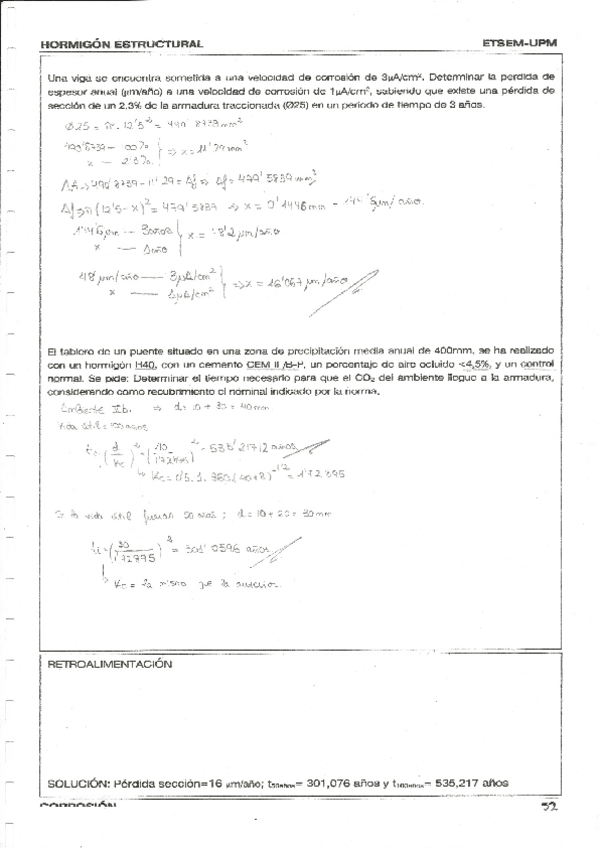 HORMIGÓN ESTRUCTURAL ETSEM-UPM
Una viga se encuentra sometida a una velocidad de corrosión de 3μA/cm². Determinar la perdida de
espesor anual (μm/año) a una velocidad de corrosión de 1μA/cm², sabiendo que existe una pérdida de
sección de un 2,3% de la armadura traccionada (Ø25) en un periodo de tiempo de 3 años.
Ø25 = π · 12'5² = 490'8739 mm²
490'8739 — 100%
x — 2'3% } ⇒ x = 11'29 mm²
490'8739 - 11'29 = Af ⇒ Af = 479'5839 mm²
Af = π (12'5-x)² = 479'5839 ⇒ x = 0'1446 mm = 144'6 μm/año.
144'6 μm — 3 años
x — 1 año } x = 48'2 μm/año
48 μm/año — 3μA/cm²
x — 1μA/cm² } ⇒ x = 16'067 μm/año
El tablero de un puente situado en una zona de precipitación media anual de 400mm, se ha realizado
con un hormigón H40, con un cemento CEM II /B-P, un porcentaje de aire ocluido <4,5%, y un control
normal. Se pide: Determinar el tiempo necesario para que el CO₂ del ambiente llegue a la armadura,
considerando como recubrimiento el nominal indicado por la norma.
Ambiente IIb. ⇒ d = 10 + 30 = 40 mm
Vida útil = 100 años
t = (d/Kc)² = (40/1'72895)² = 535'21712 años
Kc = 1'72895
Si la vida útil fueran 50 años; d = 10 + 20 = 30 mm
t = (30/1'72895)² = 301'0596 años
Kc = la misma que la anterior.
RETROALIMENTACIÓN
SOLUCIÓN: Pérdida sección=16 μm/año; t50años= 301,076 años y t100años= 535,217 años
CORROSIÓN 52